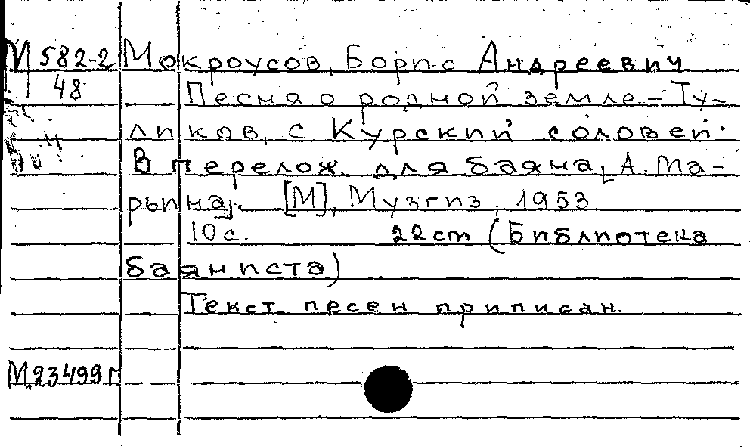 М 582-2 Мокроусов, Борис Андреевич
48 Песня о родной земле. - Ту-
ликов, С Курский соловей.
В перелож. для баяна [А. Ма-
рьина]. [М], Музгиз, 1953
10 с. 22 cm (Библиотека
баяниста)
Текст песен приписан.
М.23499 г.